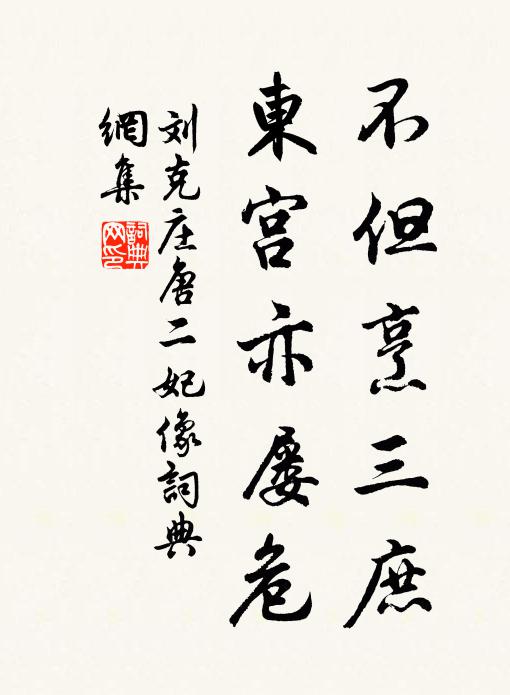 不但烹三庶
東宮亦屡危
刘克庄唐二妃像詞典
網集
詞典网印